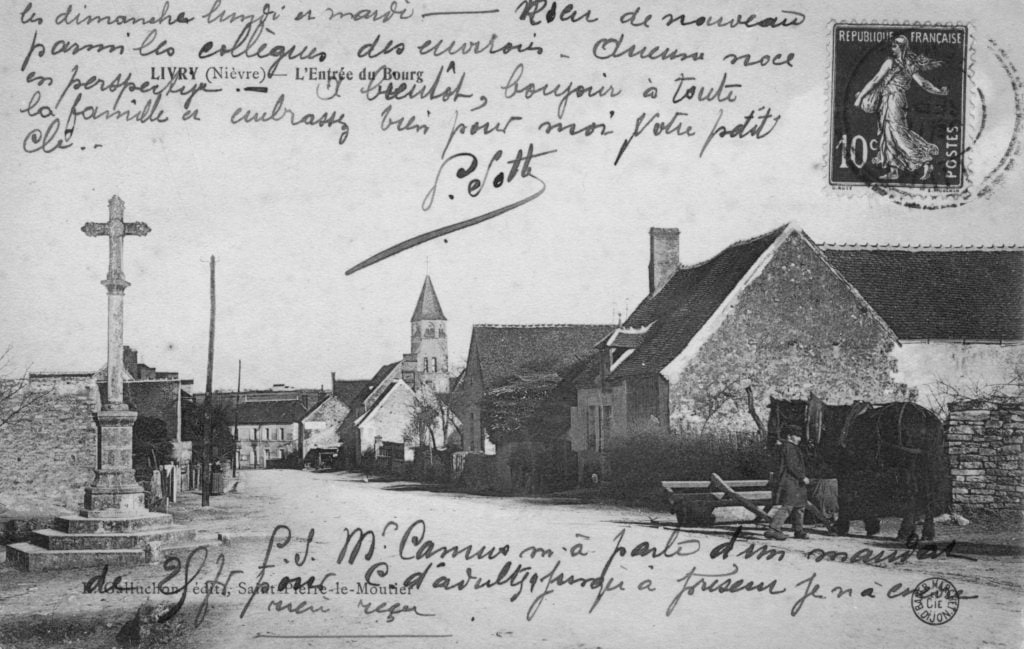 les dimanche lundi et mardi — Rien de nouveau
parmi les collègues des environs - Aucune noce
en perspective. — A bientôt, bonjour à toute
la famille et embrassez bien pour moi Votre petit
Clé..
P. Sott
LIVRY (Nièvre) — L'Entrée du Bourg
REPUBLIQUE FRANÇAISE
10c
POSTES
P.S. Mr Camus m'a parlé d'un mandat
de 25f pour C. d'adultes, jusqu'à présent je n'ai encore
rien reçu
édit. Saint-Pierre-le-Moutier
CIE
DIJON